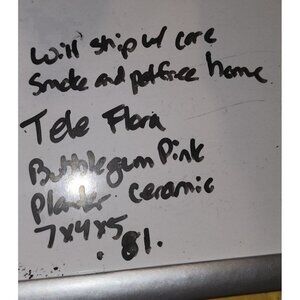 will ship w/ care
Smoke and pet free home
Tele Flora
Bubblegum Pink
Planter ceramic
7x4x5
.81.